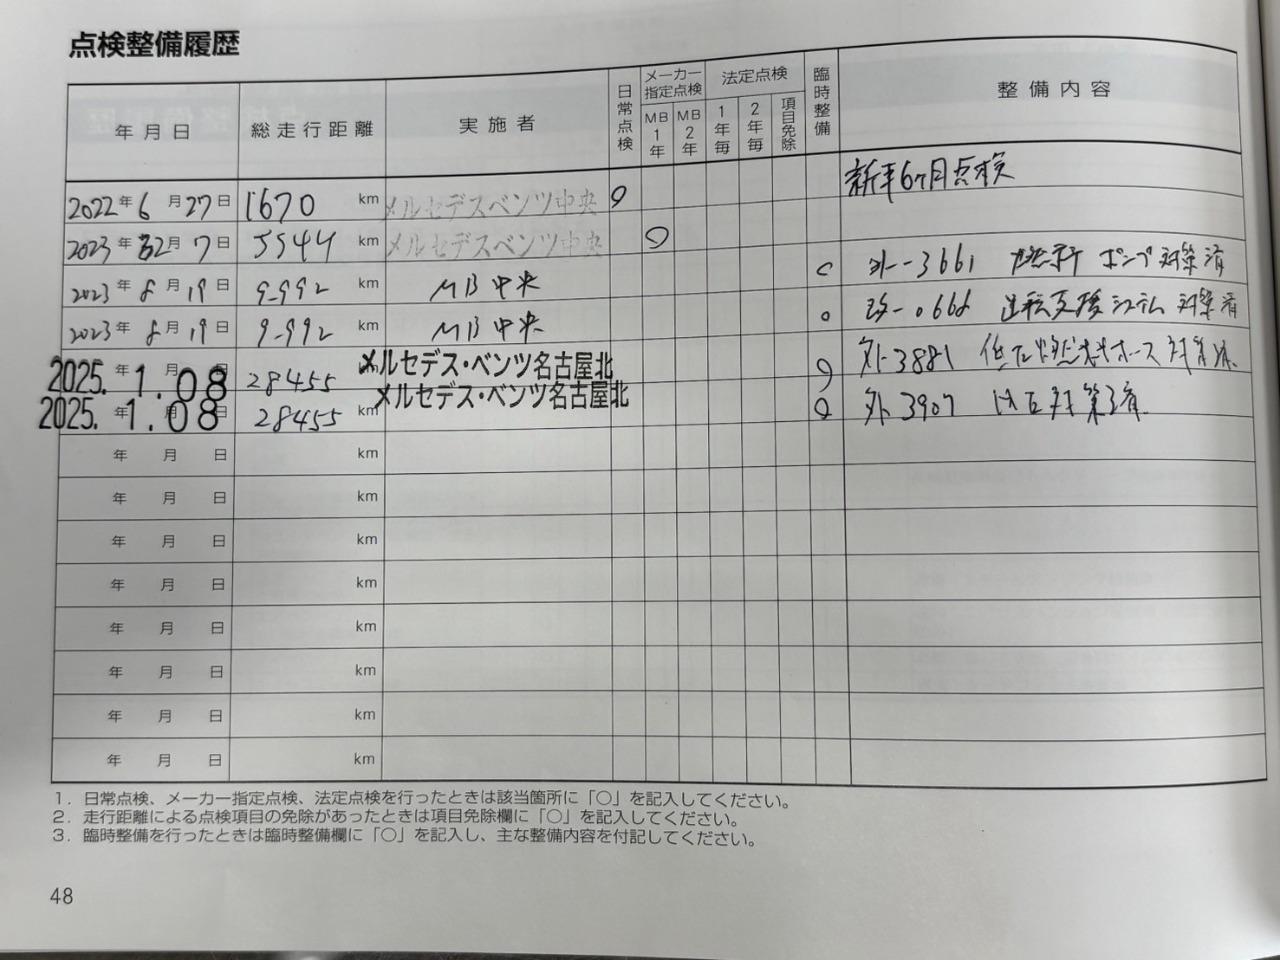 点検整備履歴
年月日 総走行距離 実施者 日常点検 メーカー指定点検 MB1年 MB2年 法定点検 1年毎 2年毎 項目免除 臨時整備 整備内容
2022年6月27日 1670km メルセデスベンツ中央 新車6ヶ月点検
2023年2月7日 5544km メルセデスベンツ中央
2023年8月19日 9,992km MB中央 外-3661 燃料ポンプ対策済
2023年8月19日 9,992km MB中央 改-0666 運転支援システム対策済
2025.年1.月08日 28455 km メルセデス・ベンツ名古屋北 外-3881 低圧燃料ホース対策済
2025.年1.月08日 28455 km メルセデス・ベンツ名古屋北 外-3907 対策済
年 月 日 km
年 月 日 km
年 月 日 km
年 月 日 km
年 月 日 km
年 月 日 km
年 月 日 km
年 月 日 km
1．日常点検、メーカー指定点検、法定点検を行ったときは該当箇所に「〇」を記入してください。
2．走行距離による点検項目の免除があったときは項目免除欄に「〇」を記入してください。
3．臨時整備を行ったときは臨時整備欄に「〇」を記入し、主な整備内容を付記してください。
48